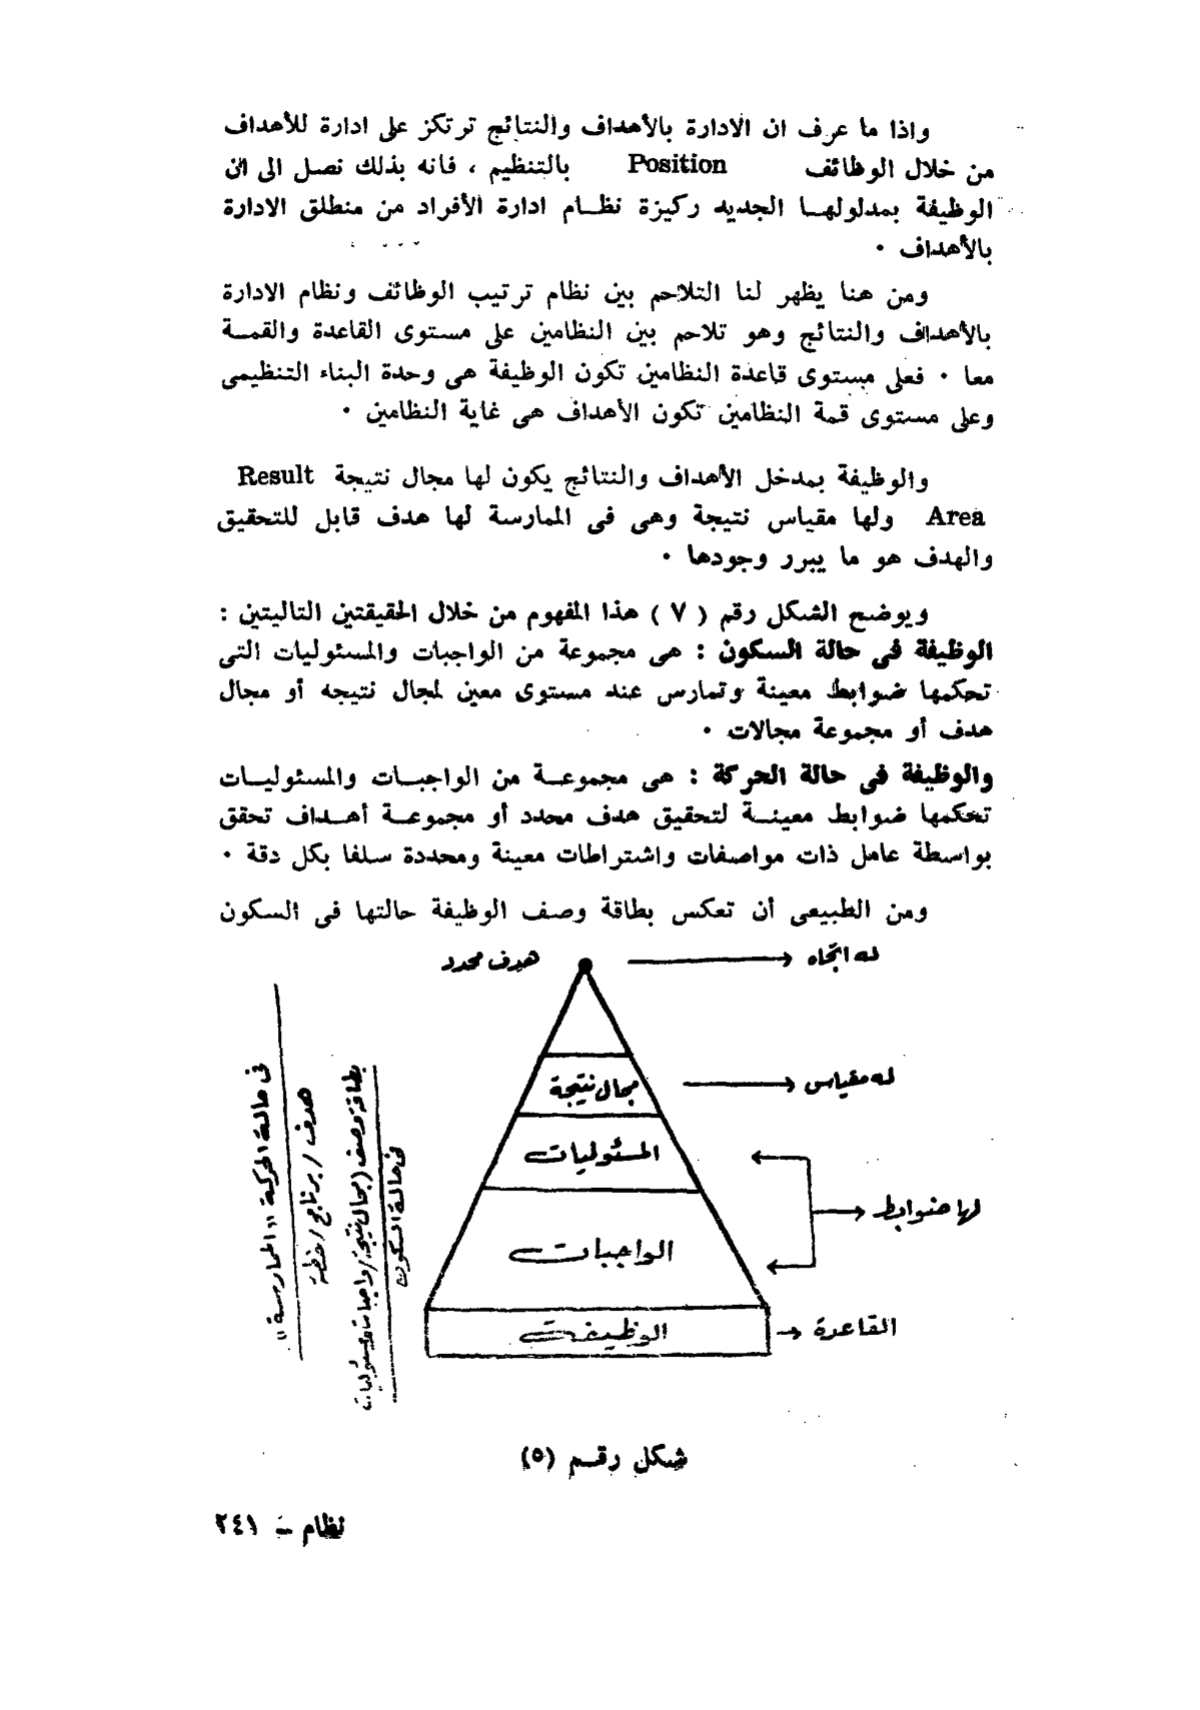 واذا ما عرف ان الادارة بالأهداف والنتائج ترتكز على ادارة للأهداف
من خلال الوظائف Position بالتنظيم ، فانه بذلك نصل الى ان
الوظيفة بمدلولها الجديد ركيزة نظام ادارة الأفراد من منطلق الادارة
بالأهداف ٠
ومن هنا يظهر لنا التلاحم بين نظام ترتيب الوظائف ونظام الادارة
بالأهداف والنتائج وهو تلاحم بين النظامين على مستوى القاعدة والقمة
معا ٠ فعلى مستوى قاعدة النظامين تكون الوظيفة هى وحدة البناء التنظيمى
وعلى مستوى قمة النظامين تكون الأهداف هى غاية النظامين ٠
والوظيفة بمدخل الأهداف والنتائج يكون لها مجال نتيجة Result
Area ولها مقياس نتيجة وهى فى الممارسة لها هدف قابل للتحقيق
والهدف هو ما يبرر وجودها ٠
ويوضح الشكل رقم ( ٧ ) هذا المفهوم من خلال الحقيقتين التاليتين :
الوظيفة فى حالة السكون : هى مجموعة من الواجبات والمسئوليات التى
تحكمها ضوابط معينة وتمارس عند مستوى معين لمجال نتيجه أو مجال
هدف أو مجموعة مجالات ٠
والوظيفة فى حالة الحركة : هى مجموعة من الواجبات والمسئوليات
تحكمها ضوابط معينة لتحقيق هدف محدد أو مجموعة أهداف تحقق
بواسطة عامل ذات مواصفات واشتراطات معينة ومحددة سلفا بكل دقة ٠
ومن الطبيعى أن تعكس بطاقة وصف الوظيفة حالتها فى السكون
له اتجاه
هدف محدد
له مقياس
مجال نتيجة
المسئوليات
لها ضوابط
الواجبات
القاعدة
الوظيفة
فى حالة السكون
بطاقة وصف (مجال نتيجة/واجبات ومسئوليات
هدف/برنامج/خطة
فى حالة الحركة "الممارسة"
شكل رقم (٥)
نظام – ٢٤١